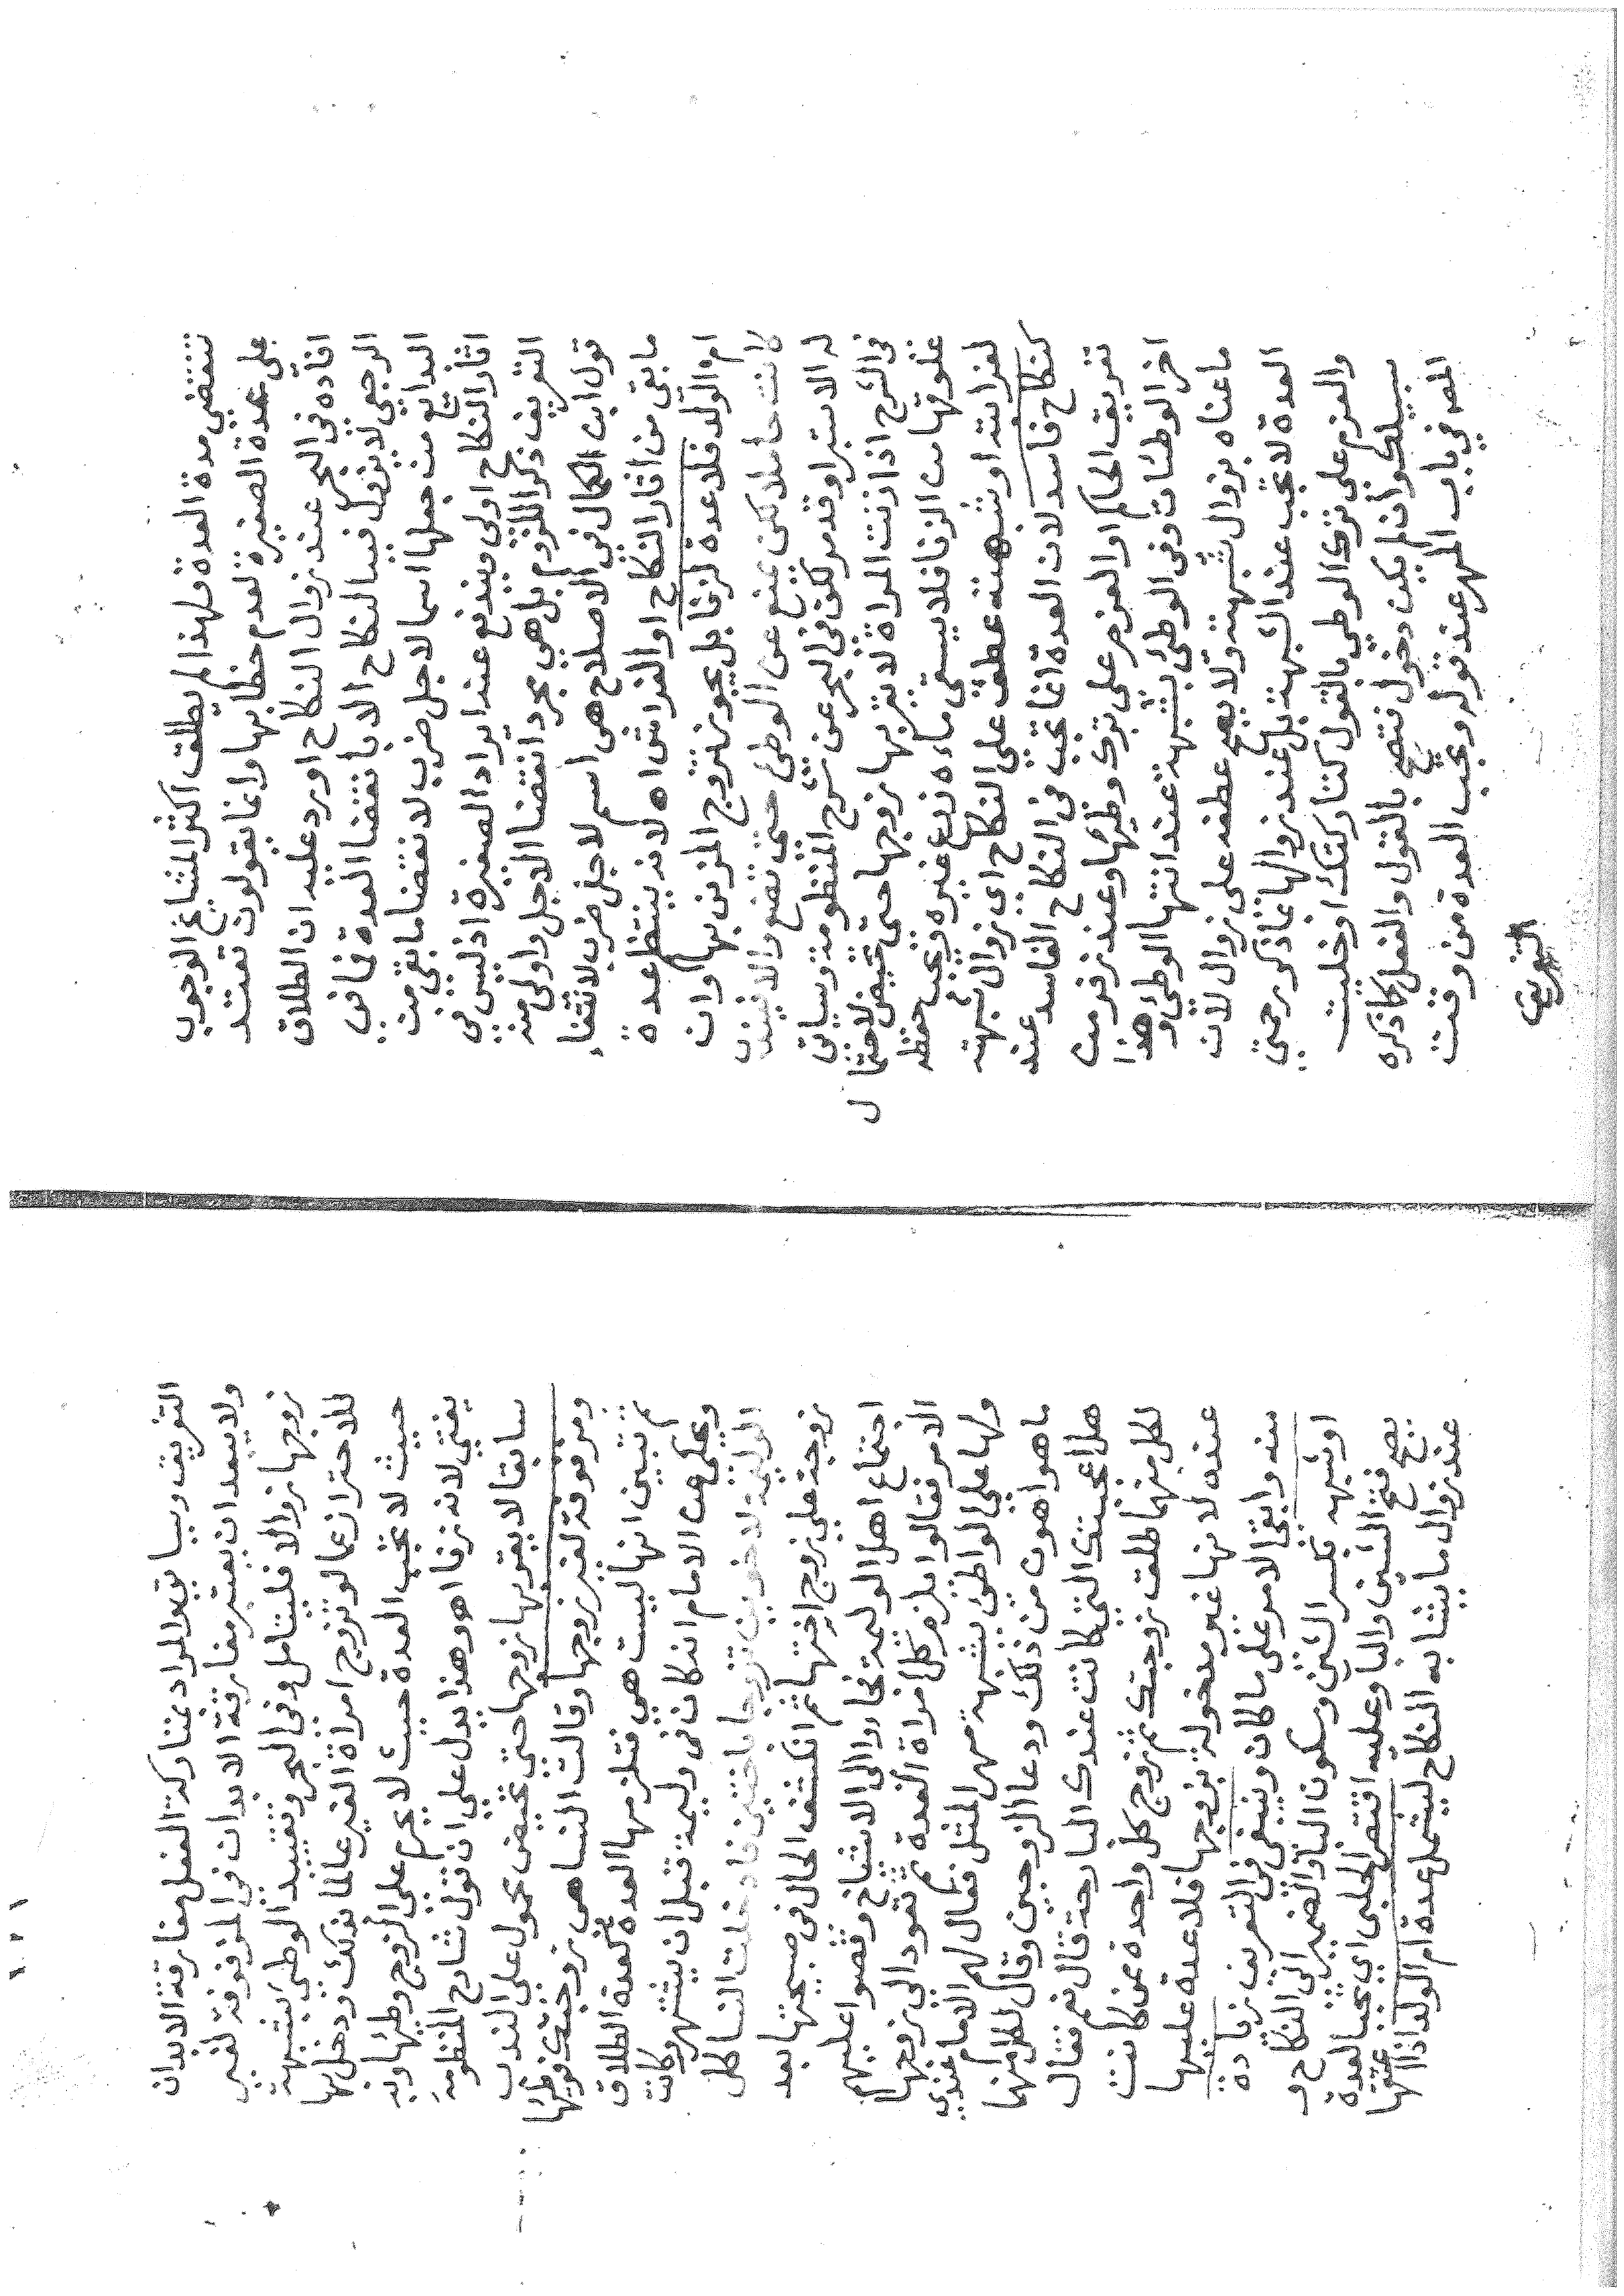 تنقضي مدة العدة فلهذا لم يطلق اكثر المشايخ الوجوب
على عدة الصغيرة لعدم خطابها وانما يقولون تعتد
افاده في البحر عند زوال النكاح اورد عليه ان الطلاق
الرجعي لا يزول فيه النكاح الا بانقضا العدة فما في
البدايع من جعلها اسما لاجل ضرب لانقضا ما بقي من
اثار النكاح اولى ويندفع عنه ايراد الصغيرة اذ ليس في
التعريف ذكر اللزوم بل هي مجرد انقضا الاجل واولى منه
قول ابن الكمال في الاصلاح هي اسم لاجل ضرب لانقضاء
ما بقي من اثار النكاح او الفراش اه لانه ينتظم عدة
ام الولد فلا عدة لزنا بل يجوز تزوج المزني بها وان
كانت حاملا لكن يمنع عن الوطئ حتى تضع والا فيندب
له الاستبرا وقد مر لكن في البحر عن شرح المنظومة وسياتي
في الشرح اذا زنت المراة لا يقربها زوجها حتى تحيض لاحتمال
علوقها من الزنا فلا يسقي ماءه زرع غيره ويجب حفظه
لغرابته او شبهته عطف على النكاح اي زوال شبهته
كنكاح فاسد لان العدة انما تجب في النكاح الفاسد عند
تفريق الحاكم او العزم على ترك وطئها وعند زفر من
اخر الوطئات وفي الوطئ بشبهة عند انتها الوطئ وهذا
ما عناه بزوال شبهته ولا يصح عطفه على زوال لان
العدة لا تجب عند الشبهة بل عند زوالها غا ذكو رحمتي
والعزم على ترك الوطي بالقول كتاركتك او خليت
سبيلك وان لم يكن دخول فتصح بالقول والفعل كما ذكره
المص في باب المهر عند قوله وتجب العدة من وقت
التفريق
التفريق وسياتي والمراد بمتاركة الفعل مفارقة الابدان
ولا يبعد ان يعتبر مفارقة الابدان في المزفوفة لغير
زوجها زوالا فليتامل وفي البحر وتقييد الوطئ بشبهة
للاحتراز عما لو تزوج امراة الغير عالما بذلك ودخل بها
حيث لا تجب العدة حيث لا يحرم على الزوج وطئها وبه
يفتى لانه زنا اه وهذا يدل على ان قول شارح المنظومة
سابقا لا يقربها زوجها حتى تحيض محمول على الندب
ومزفوفة لغير زوجها وقالت النسا هي زوجتك فوطئها
ثم تبين انها ليست هي فتلزمها العدة كعدة الطلاق
وحكي عن الامام انه كان في وليمة قبل ان يشتهر وكانت
الوليمة لاخوين تزوجا باختين فادخلت النسا كل
زوجة على زوج اختها ثم انكشف الحال في صبيحتها بعد
اجتماع اهل الوليمة فحاروا الى الاشياخ وقصوا عليهم
الامر فقالوا يلزم كل امراة العدة ثم تعود الى زوجها
ولها على الواطئ بشبهة مهر المثل فقال لهم الامام عندي
ما هو اهون من ذلك ودعا الزوجين وقال لكل منهما
هل اعجبتك التي كانت عندك البارحة قال نعم فقال
لكل منهما طلق زوجتك ثم تزوج كل واحدة ممن كانت
عنده لانها غير مدخولة بزوجها فلا عدة عليها
منه وابقى الامر على ما كان وينبغي في التعريف زيادة
او شبهه بكسر الشين وسكون البا والضمير الى النكاح و
بصح فتح الشين والبا وعليه اقتصر الحلبي اي يجب العدة
عند زوال ما يشابه النكاح ليشمل عدة ام الولد اذا اعتقها